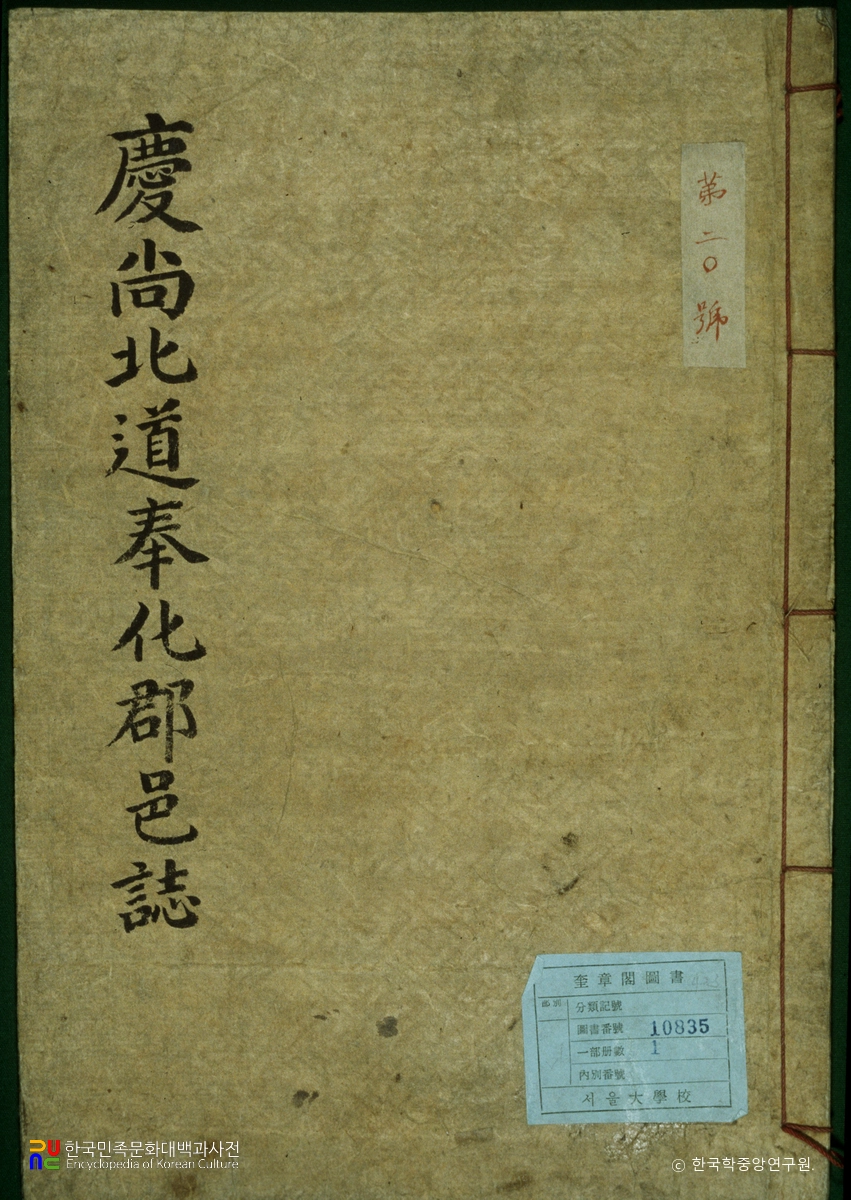 慶尚北道奉化郡邑誌
第二〇號
奎章閣圖書
部別
分類記號
圖書番號 10835
一部册數 1
內別番號
서울大學校
한국민족문화대백과사전
Encyclopedia of Korean Culture
© 한국학중앙연구원.